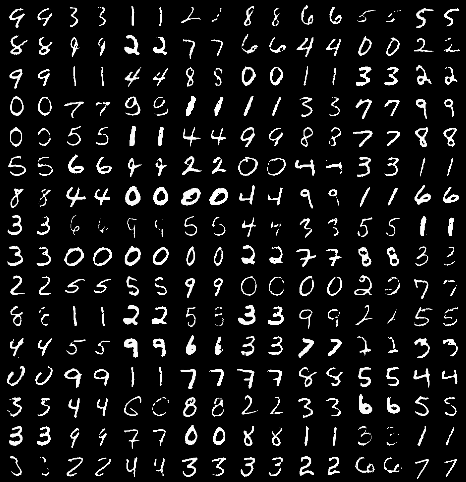 9 9 3 3 1 1 2 2 8 8 6 6 5 5 5 5
8 8 9 9 2 2 7 7 6 6 4 4 0 0 2 2
9 9 1 1 4 4 8 8 0 0 1 1 3 3 2 2
0 0 7 7 9 9 1 1 1 1 3 3 7 7 9 9
0 0 5 5 1 1 4 4 9 9 8 8 7 7 8 8
5 5 6 6 9 9 2 2 0 0 4 4 3 3 1 1
8 8 4 4 0 0 0 0 4 4 9 9 1 1 6 6
3 3 6 6 9 9 5 5 4 4 3 3 5 5 1 1
3 3 0 0 0 0 0 0 2 2 7 7 8 8 3 3
2 2 5 5 5 5 9 9 0 0 0 0 2 2 7 7
8 8 1 1 2 2 5 5 3 3 9 9 2 2 5 5
4 4 5 5 9 9 6 6 3 3 7 7 2 2 3 3
0 0 9 9 1 1 7 7 7 7 8 8 5 5 4 4
3 3 4 4 6 6 8 8 2 2 3 3 6 6 5 5
3 3 9 9 7 7 0 0 8 8 1 1 3 3 1 1
3 3 2 2 4 4 3 3 3 3 2 2 6 6 7 7